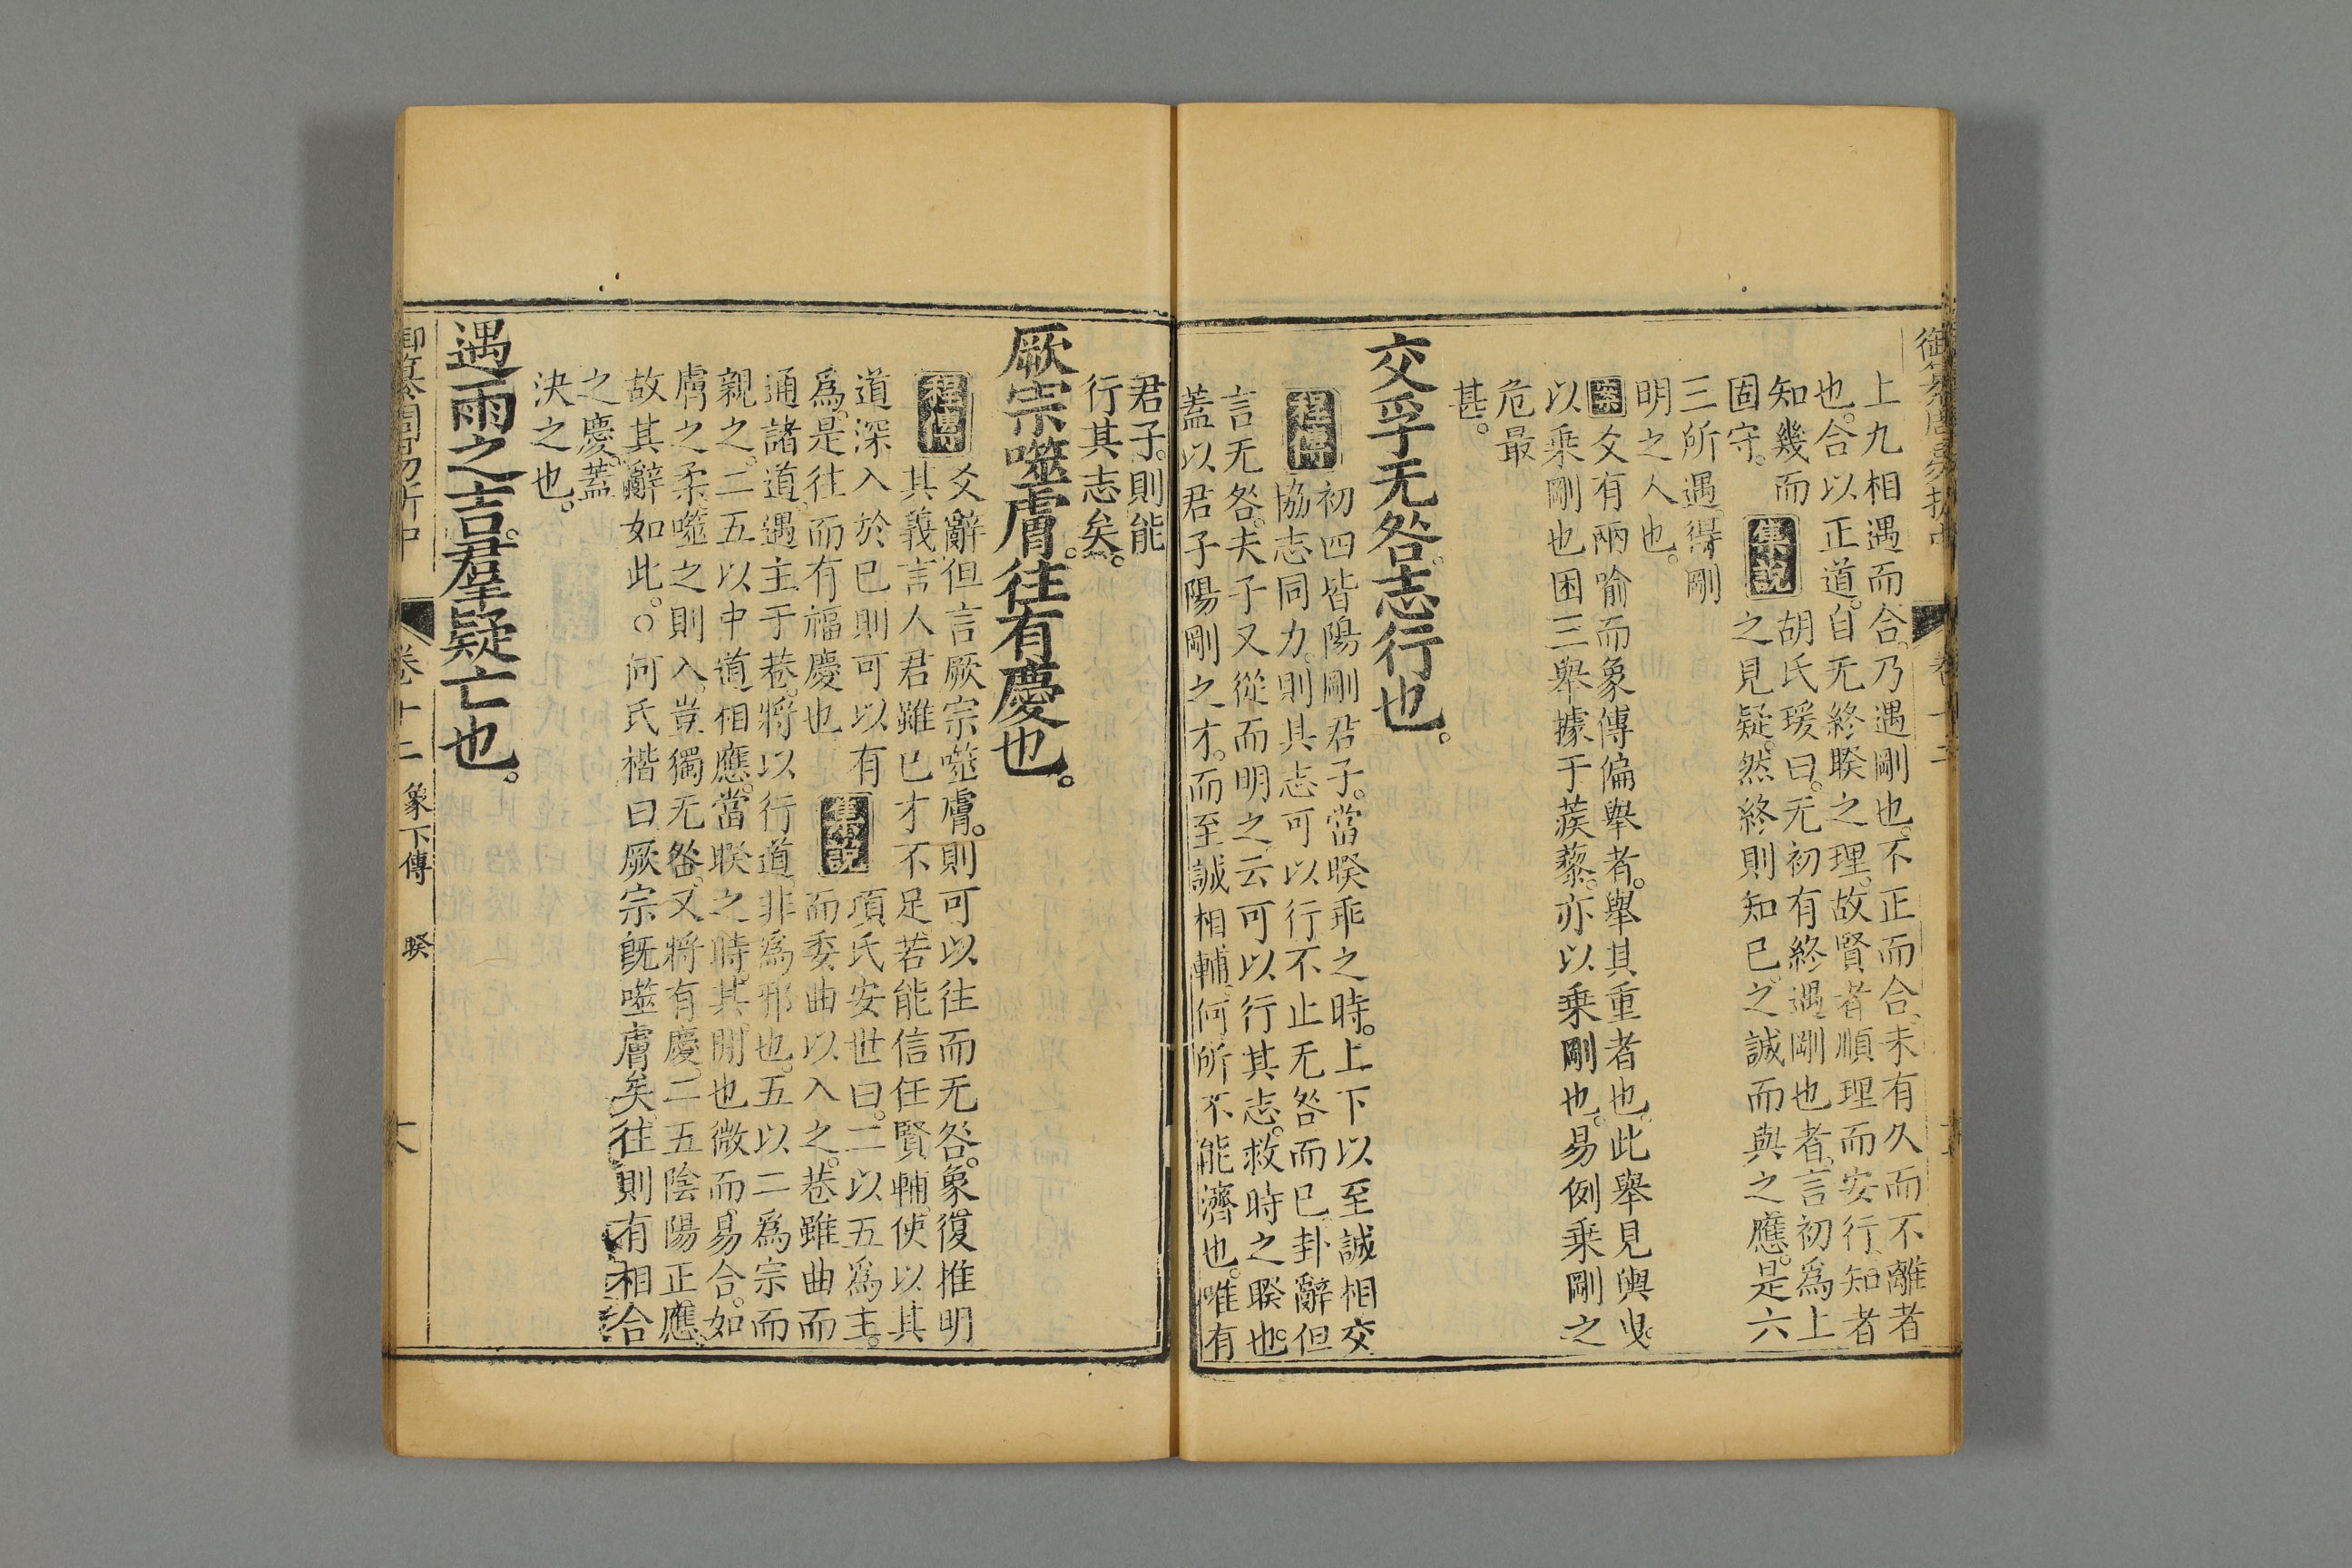 上九相遇而合。乃遇剛也。不正而合。未有久而不離者
也。合以正道。自无終睽之理。故賢者順理而安行。知者
知幾而
固守。
集說
胡氏瑗曰。无初有終遇剛也者。言初爲上
之見疑。然終則知已之誠而與之應。是六
三所遇。得剛
明之人也。
案 爻有兩喻而象傳偏舉者。舉其重者也。此舉見輿曳。
以乘剛也困三舉據于蒺藜。亦以乘剛也。易例乘剛之
危最
甚。
交孚无咎。志行也。
程傳
初四皆陽剛君子。當睽乖之時。上下以至誠相交
協志同力。則其志可以行。不止无咎而已。卦辭但
言无咎。夫子又從而明之。云可以行其志。救時之睽也。
蓋以君子陽剛之才。而至誠相輔。何所不能濟也。唯有
君子。則能
行其志矣。
厥宗噬膚。往有慶也。
程傳
爻辭但言厥宗噬膚。則可以往而无咎。象復推明
其義言人君雖已才不足。若能信任賢輔。使以其
道深入於已則可以有
爲。是往而有福慶也
集說
項氏安世曰。二以五爲主。
而委曲以入之。巷雖曲而
通諸道。遇主于巷。將以行道。非爲邪也。五以二爲宗而
親之。二五以中道相應。當睽之時。其閒也微而易合。如
膚之柔。噬之則入。豈獨无咎。又將有慶。二五陰陽正應
故其辭如此。○何氏楷曰厥宗既噬膚矣往則有相合
之慶。蓋
決之也。
遇雨之吉。羣疑亡也。
卷十二 象下傳 睽